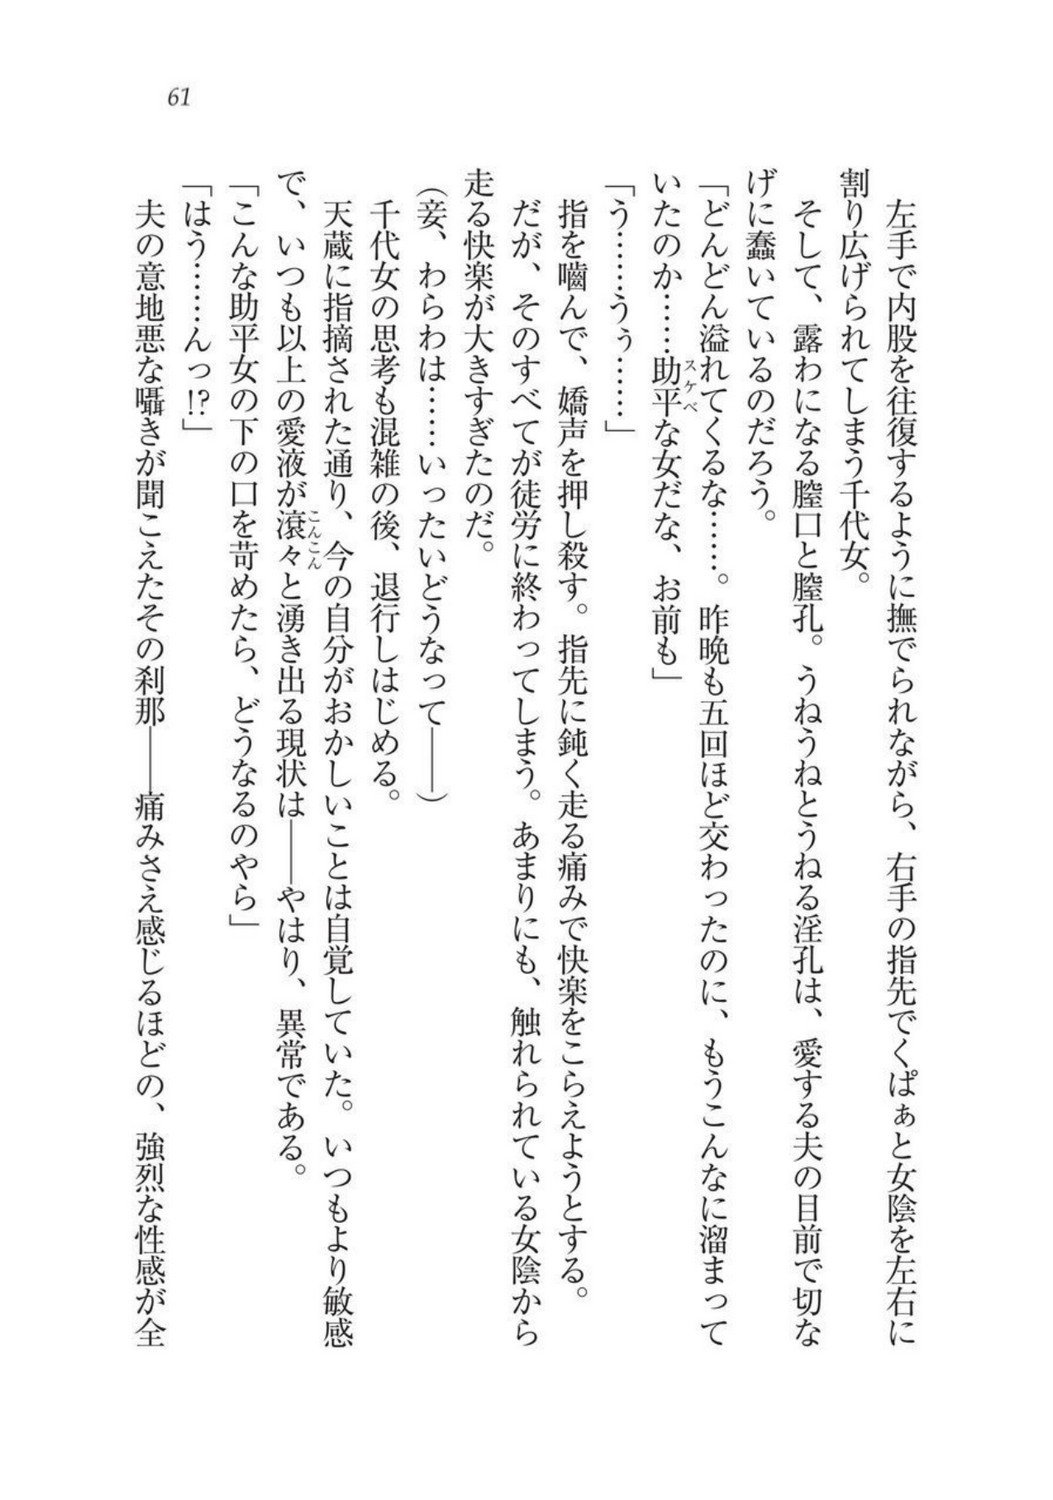 61
左手で内股を往復するように撫でられながら、右手の指先でくぱぁと女陰を左右に
割り広げられてしまう千代女。
そして、露わになる膣口と膣孔。うねうねとうねる淫孔は、愛する夫の目前で切な
げに蠢いているのだろう。
「どんどん溢れてくるな……。昨晩も五回ほど交わったのに、もうこんなに溜まって
いたのか……助平な女だな、お前も」
スケベ
「う……うぅ……」
指を嚙んで、嬌声を押し殺す。指先に鈍く走る痛みで快楽をこらえようとする。
だが、そのすべてが徒労に終わってしまう。あまりにも、触れられている女陰から
走る快楽が大きすぎたのだ。
（妾、わらわは……いったいどうなって――）
千代女の思考も混雑の後、退行しはじめる。
天蔵に指摘された通り、今の自分がおかしいことは自覚していた。いつもより敏感
で、いつも以上の愛液が滾々と湧き出る現状は――やはり、異常である。
こんこん
「こんな助平女の下の口を苛めたら、どうなるのやら」
「はう……んっ!?」
夫の意地悪な囁きが聞こえたその刹那――痛みさえ感じるほどの、強烈な性感が全